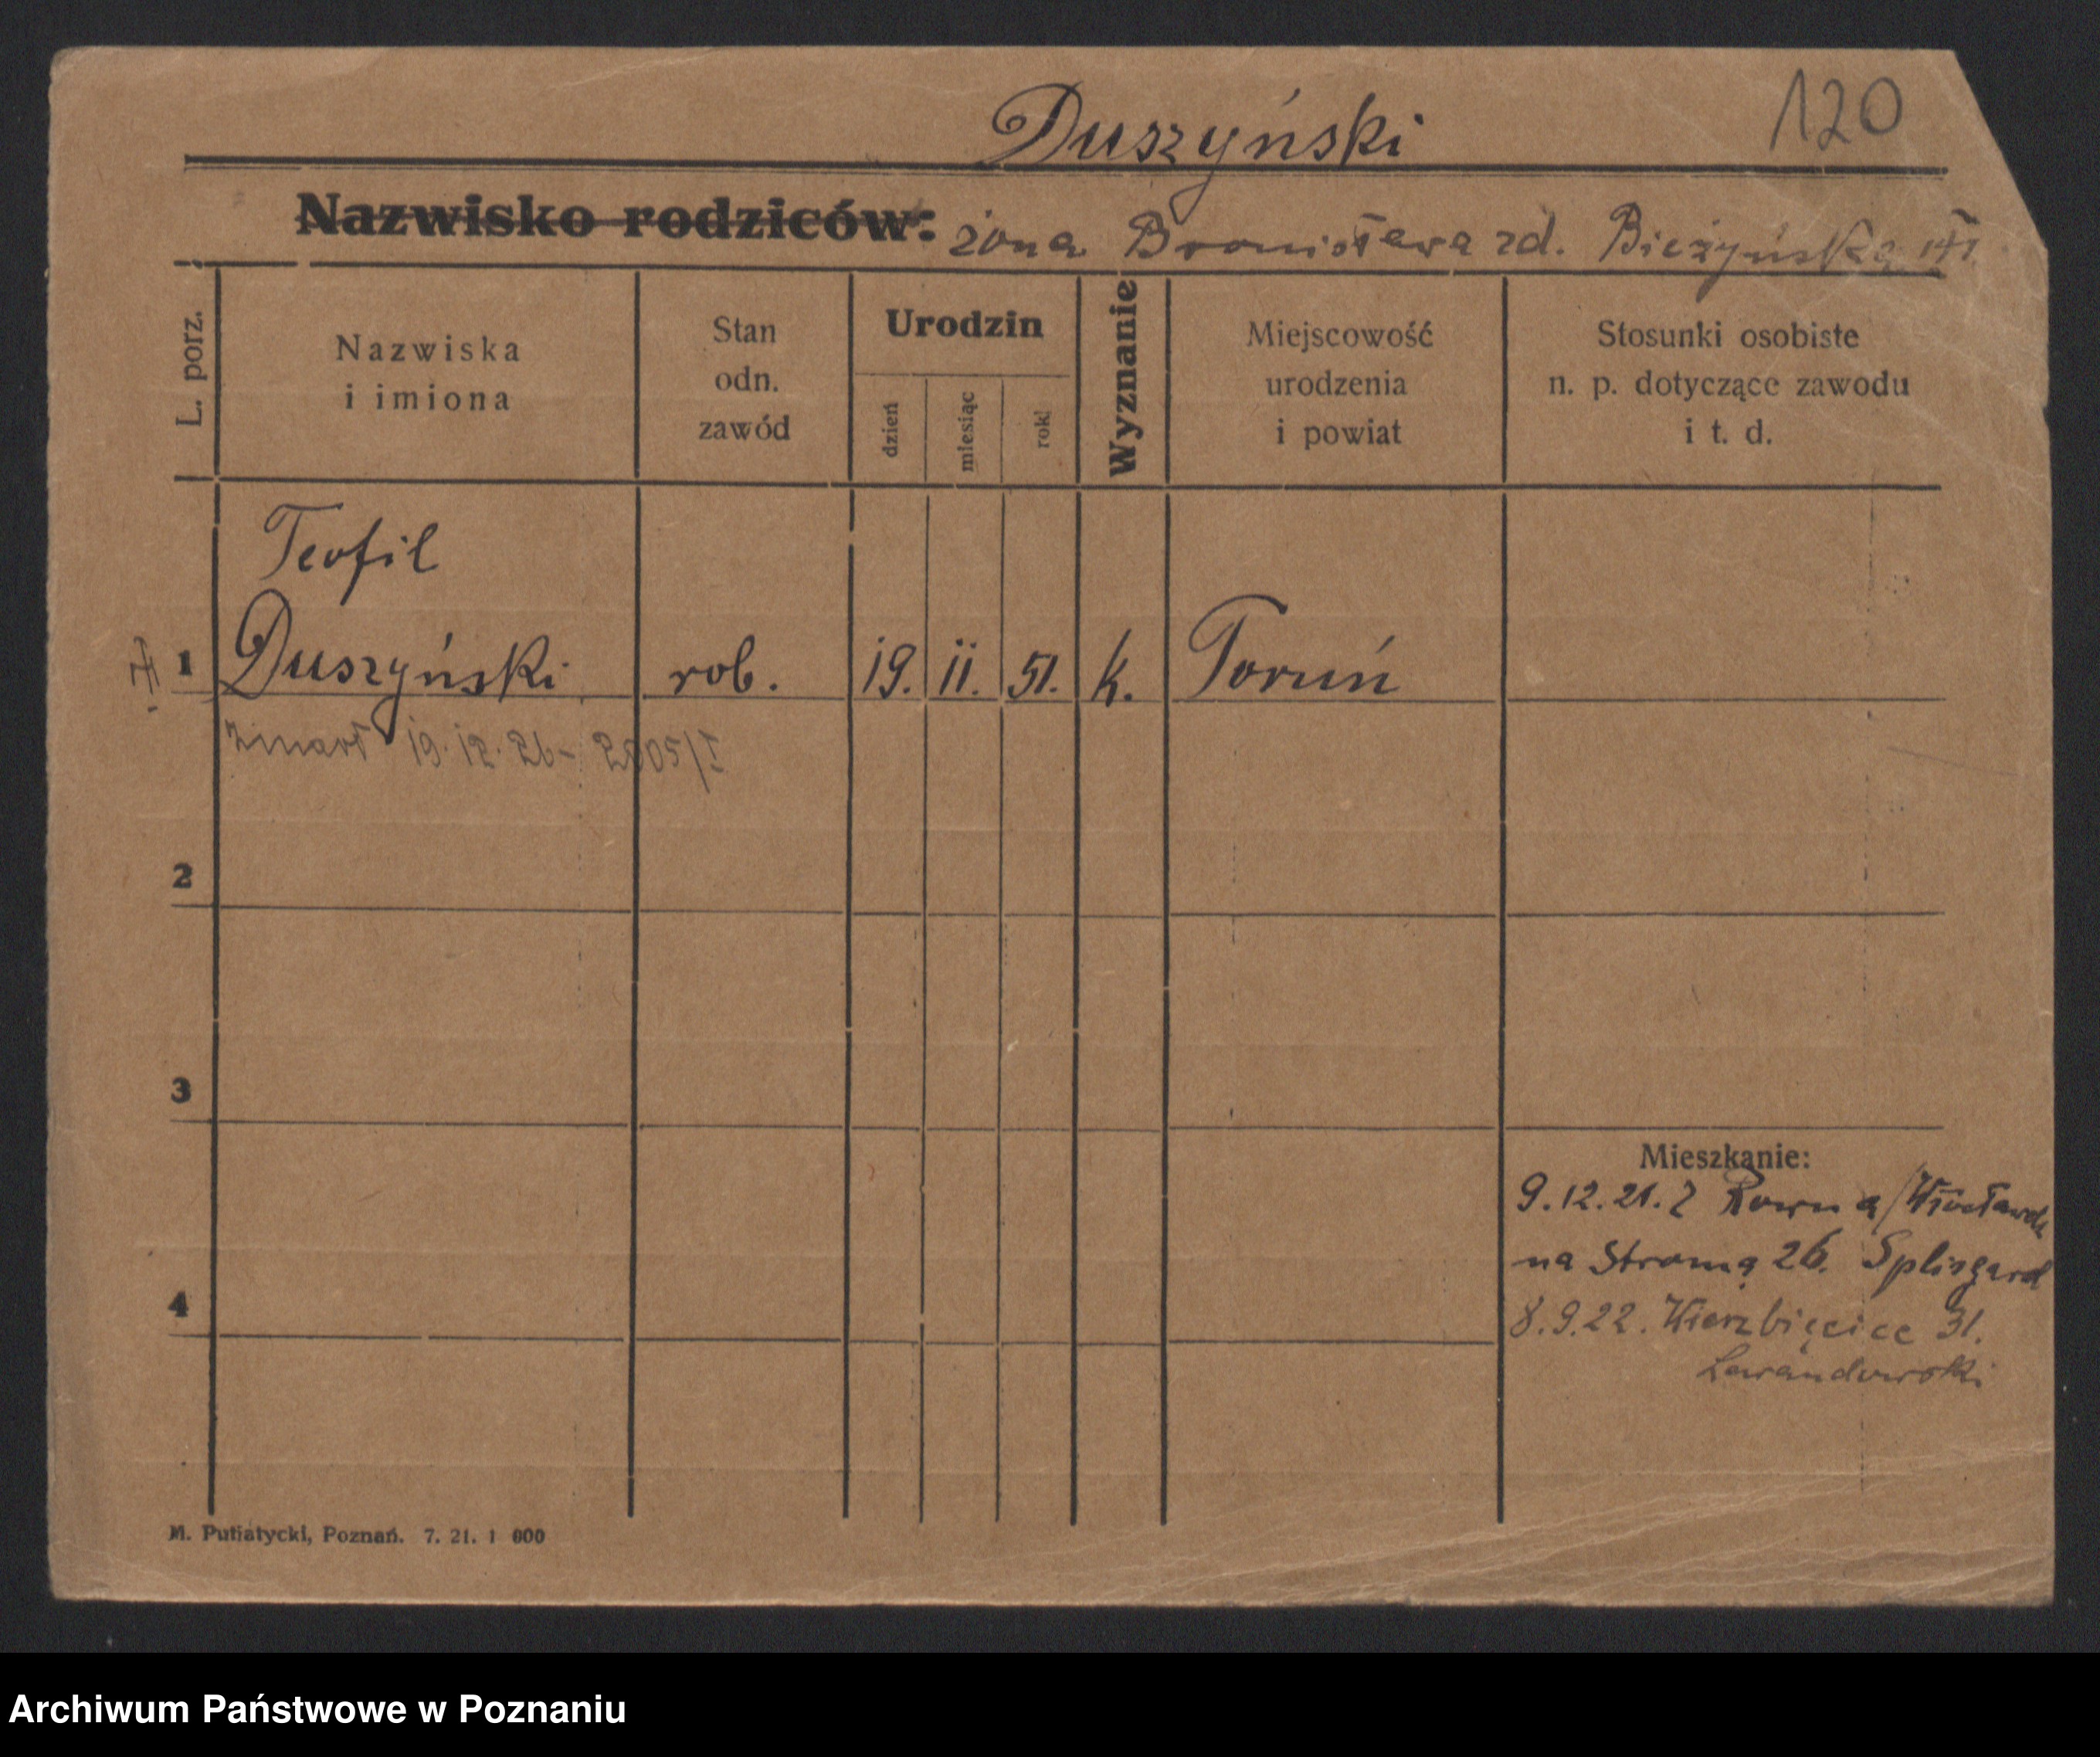 120
Duszyński
Nazwisko rodziców: żona Bronisława zd. Bieżyńska
L. porz.
Nazwiska
i imiona
Stan
odn.
zawód
Urodzin
dzień
miesiąc
rok
Wyznanie
Miejscowość
urodzenia
i powiat
Stosunki osobiste
n. p. dotyczące zawodu
i t. d.
Teofil
1 Duszyński rob. 19. 11. 51. k. Toruń
zmarł 19.12.26 - 2805/I
2
3
4
Mieszkanie:
9.12.21. z Rowną/Włocławek
na Stromą 26. Splisgard
8.9.22. Wierzbięcice 31.
Lewandowski
M. Putiatycki, Poznań. 7. 21. 1 000
Archiwum Państwowe w Poznaniu